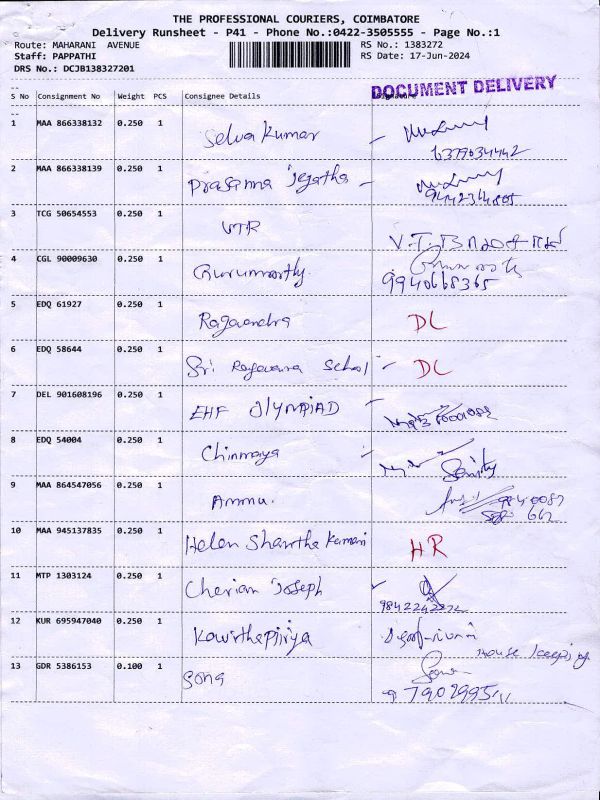 THE PROFESSIONAL COURIERS, COIMBATORE
Delivery Runsheet - P41 - Phone No.:0422-3505555 - Page No.:1
Route: MAHARANI AVENUE RS No.: 1383272
Staff: PAPPATHI RS Date: 17-Jun-2024
DRS No.: DCJB138327201
DOCUMENT DELIVERY
S No Consignment No Weight PCS Consignee Details Signature
1 MAA 866338132 0.250 1 Selva Kumar
6379034442
2 MAA 866338139 0.250 1 Prasanna Jegatha
9442314805
3 TCG 50654553 0.250 1 VTR
4 CGL 90009630 0.250 1 Gurumoorthy
9940668365
5 EDQ 61927 0.250 1 Ragavendra DL
6 EDQ 58644 0.250 1 Sri Ragavana School DL
7 DEL 901608196 0.250 1 EHF OLYMPIAD
8 EDQ 54004 0.250 1 Chinmaya
9 MAA 864547056 0.250 1 Ammu.
10 MAA 945137835 0.250 1 Helen Shantha Kumari HR
11 MTP 1303124 0.250 1 Cherian Joseph
12 KUR 695947040 0.250 1 Kavithapiriya
House keeping
13 GDR 5386153 0.100 1 Sona